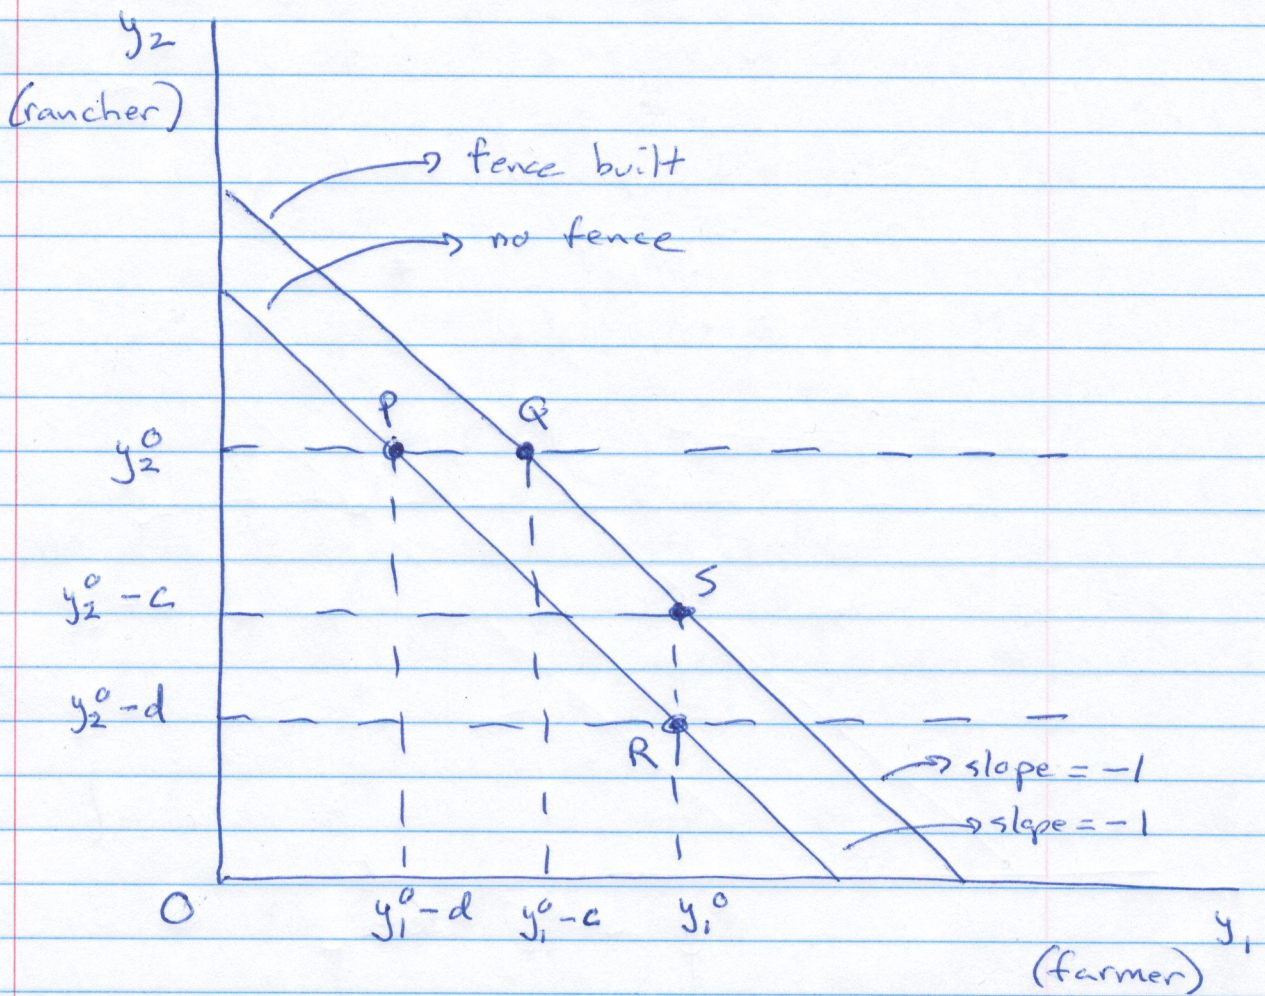 y₂
(rancher)
fence built
no fence
P
Q
y₂⁰
S
y₂⁰ - c
y₂⁰ - d
R
slope = -1
slope = -1
O
y₁⁰ - d
y₁⁰ - c
y₁⁰
y₁
(farmer)